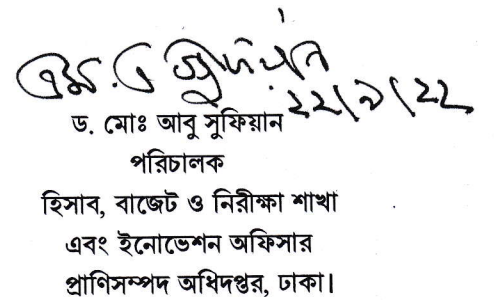 এম. এ সুফিয়ান
২২/৯/২২
ড. মোঃ আবু সুফিয়ান
পরিচালক
হিসাব, বাজেট ও নিরীক্ষা শাখা
এবং ইনোভেশন অফিসার
প্রাণিসম্পদ অধিদপ্তর, ঢাকা।